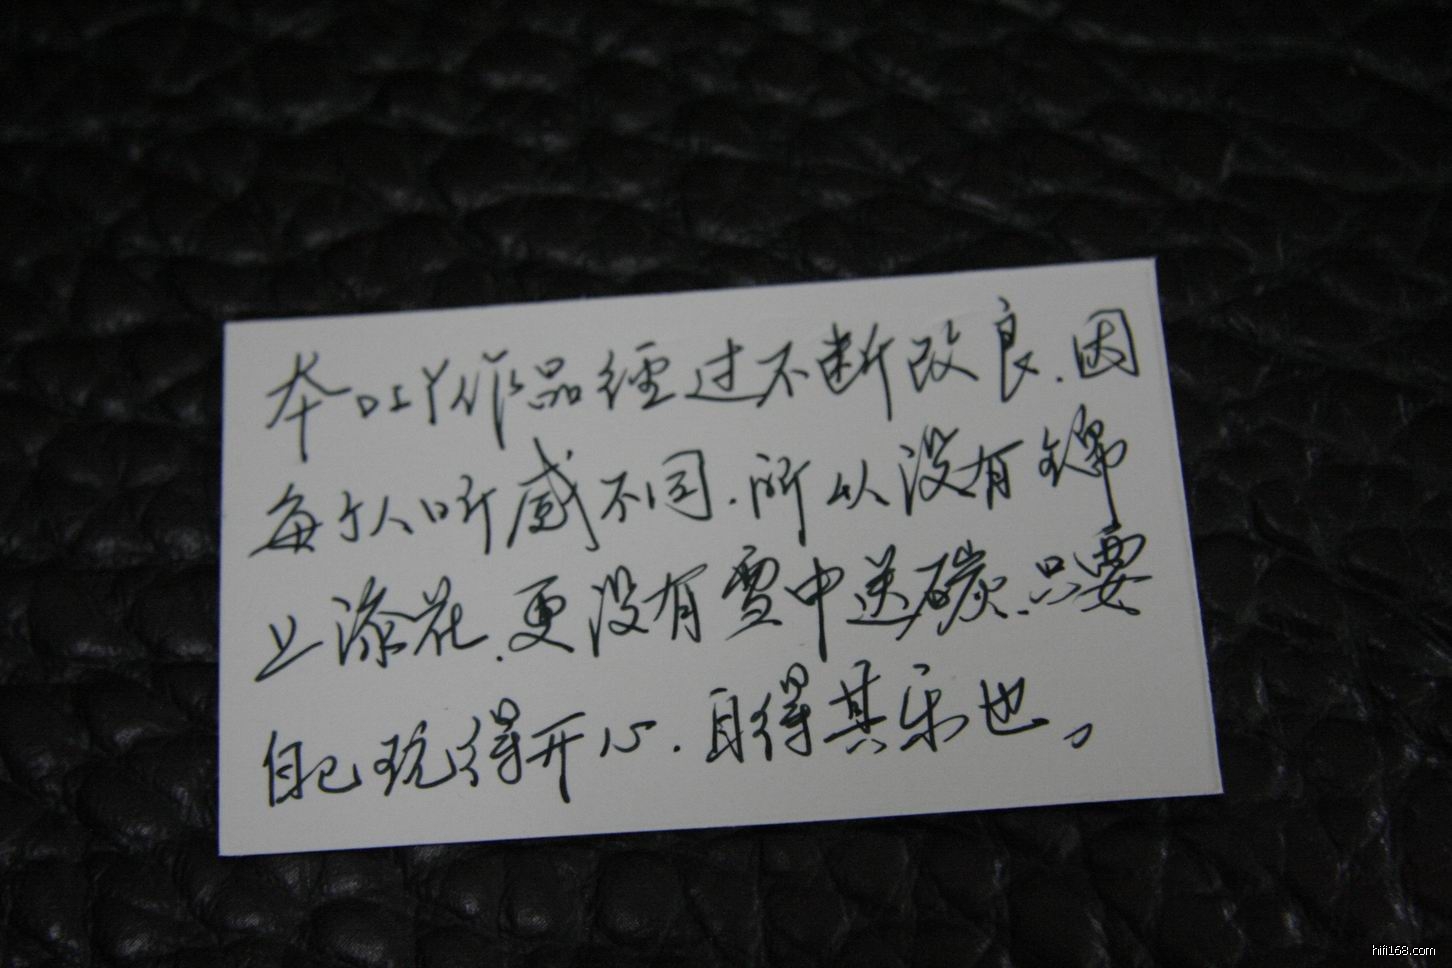 本DIY作品经过不断改良.因
每个人听感不同.所以没有锦
上添花.更没有雪中送碳.只要
自己玩得开心.自得其乐也。
hifi168.com